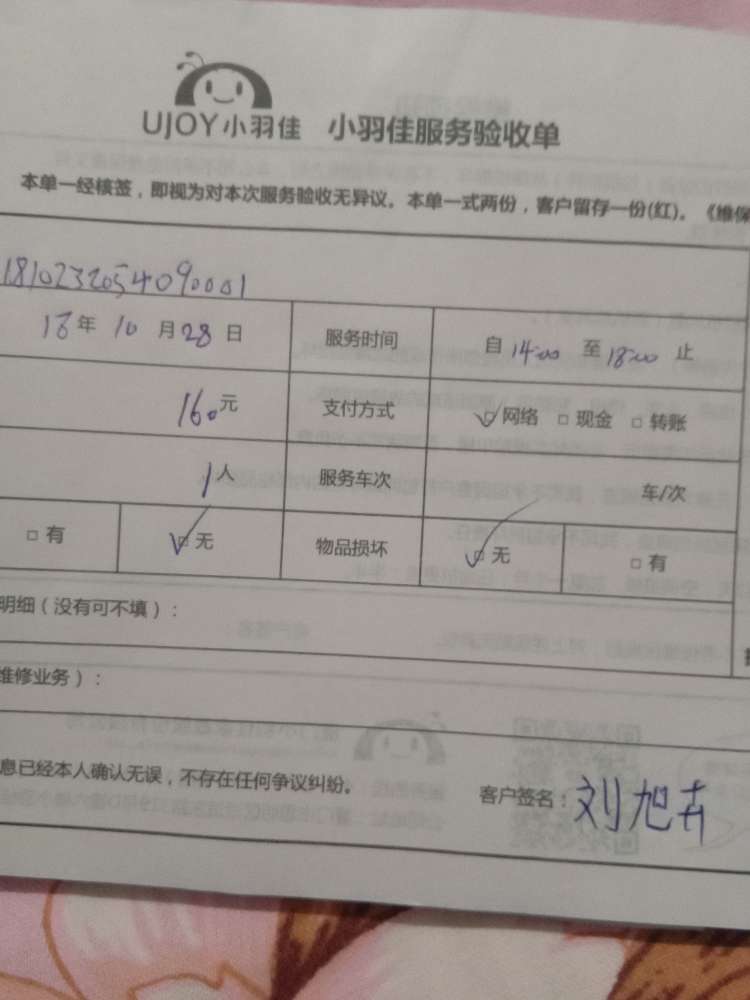 UJOY小羽佳 小羽佳服务验收单
本单一经核签，即视为对本次服务验收无异议。本单一式两份，客户留存一份(红)。《维保
1810232054090001
18年 10 月 28 日 服务时间 自 14:00 至 18:00 止
160元 支付方式 ☑网络 □现金 □转账
1人 服务车次 车/次
□有 ☑无 物品损坏 ☑无 □有
明细（没有可不填）：
维修业务）：
息已经本人确认无误，不存在任何争议纠纷。 客户签名：刘旭卉